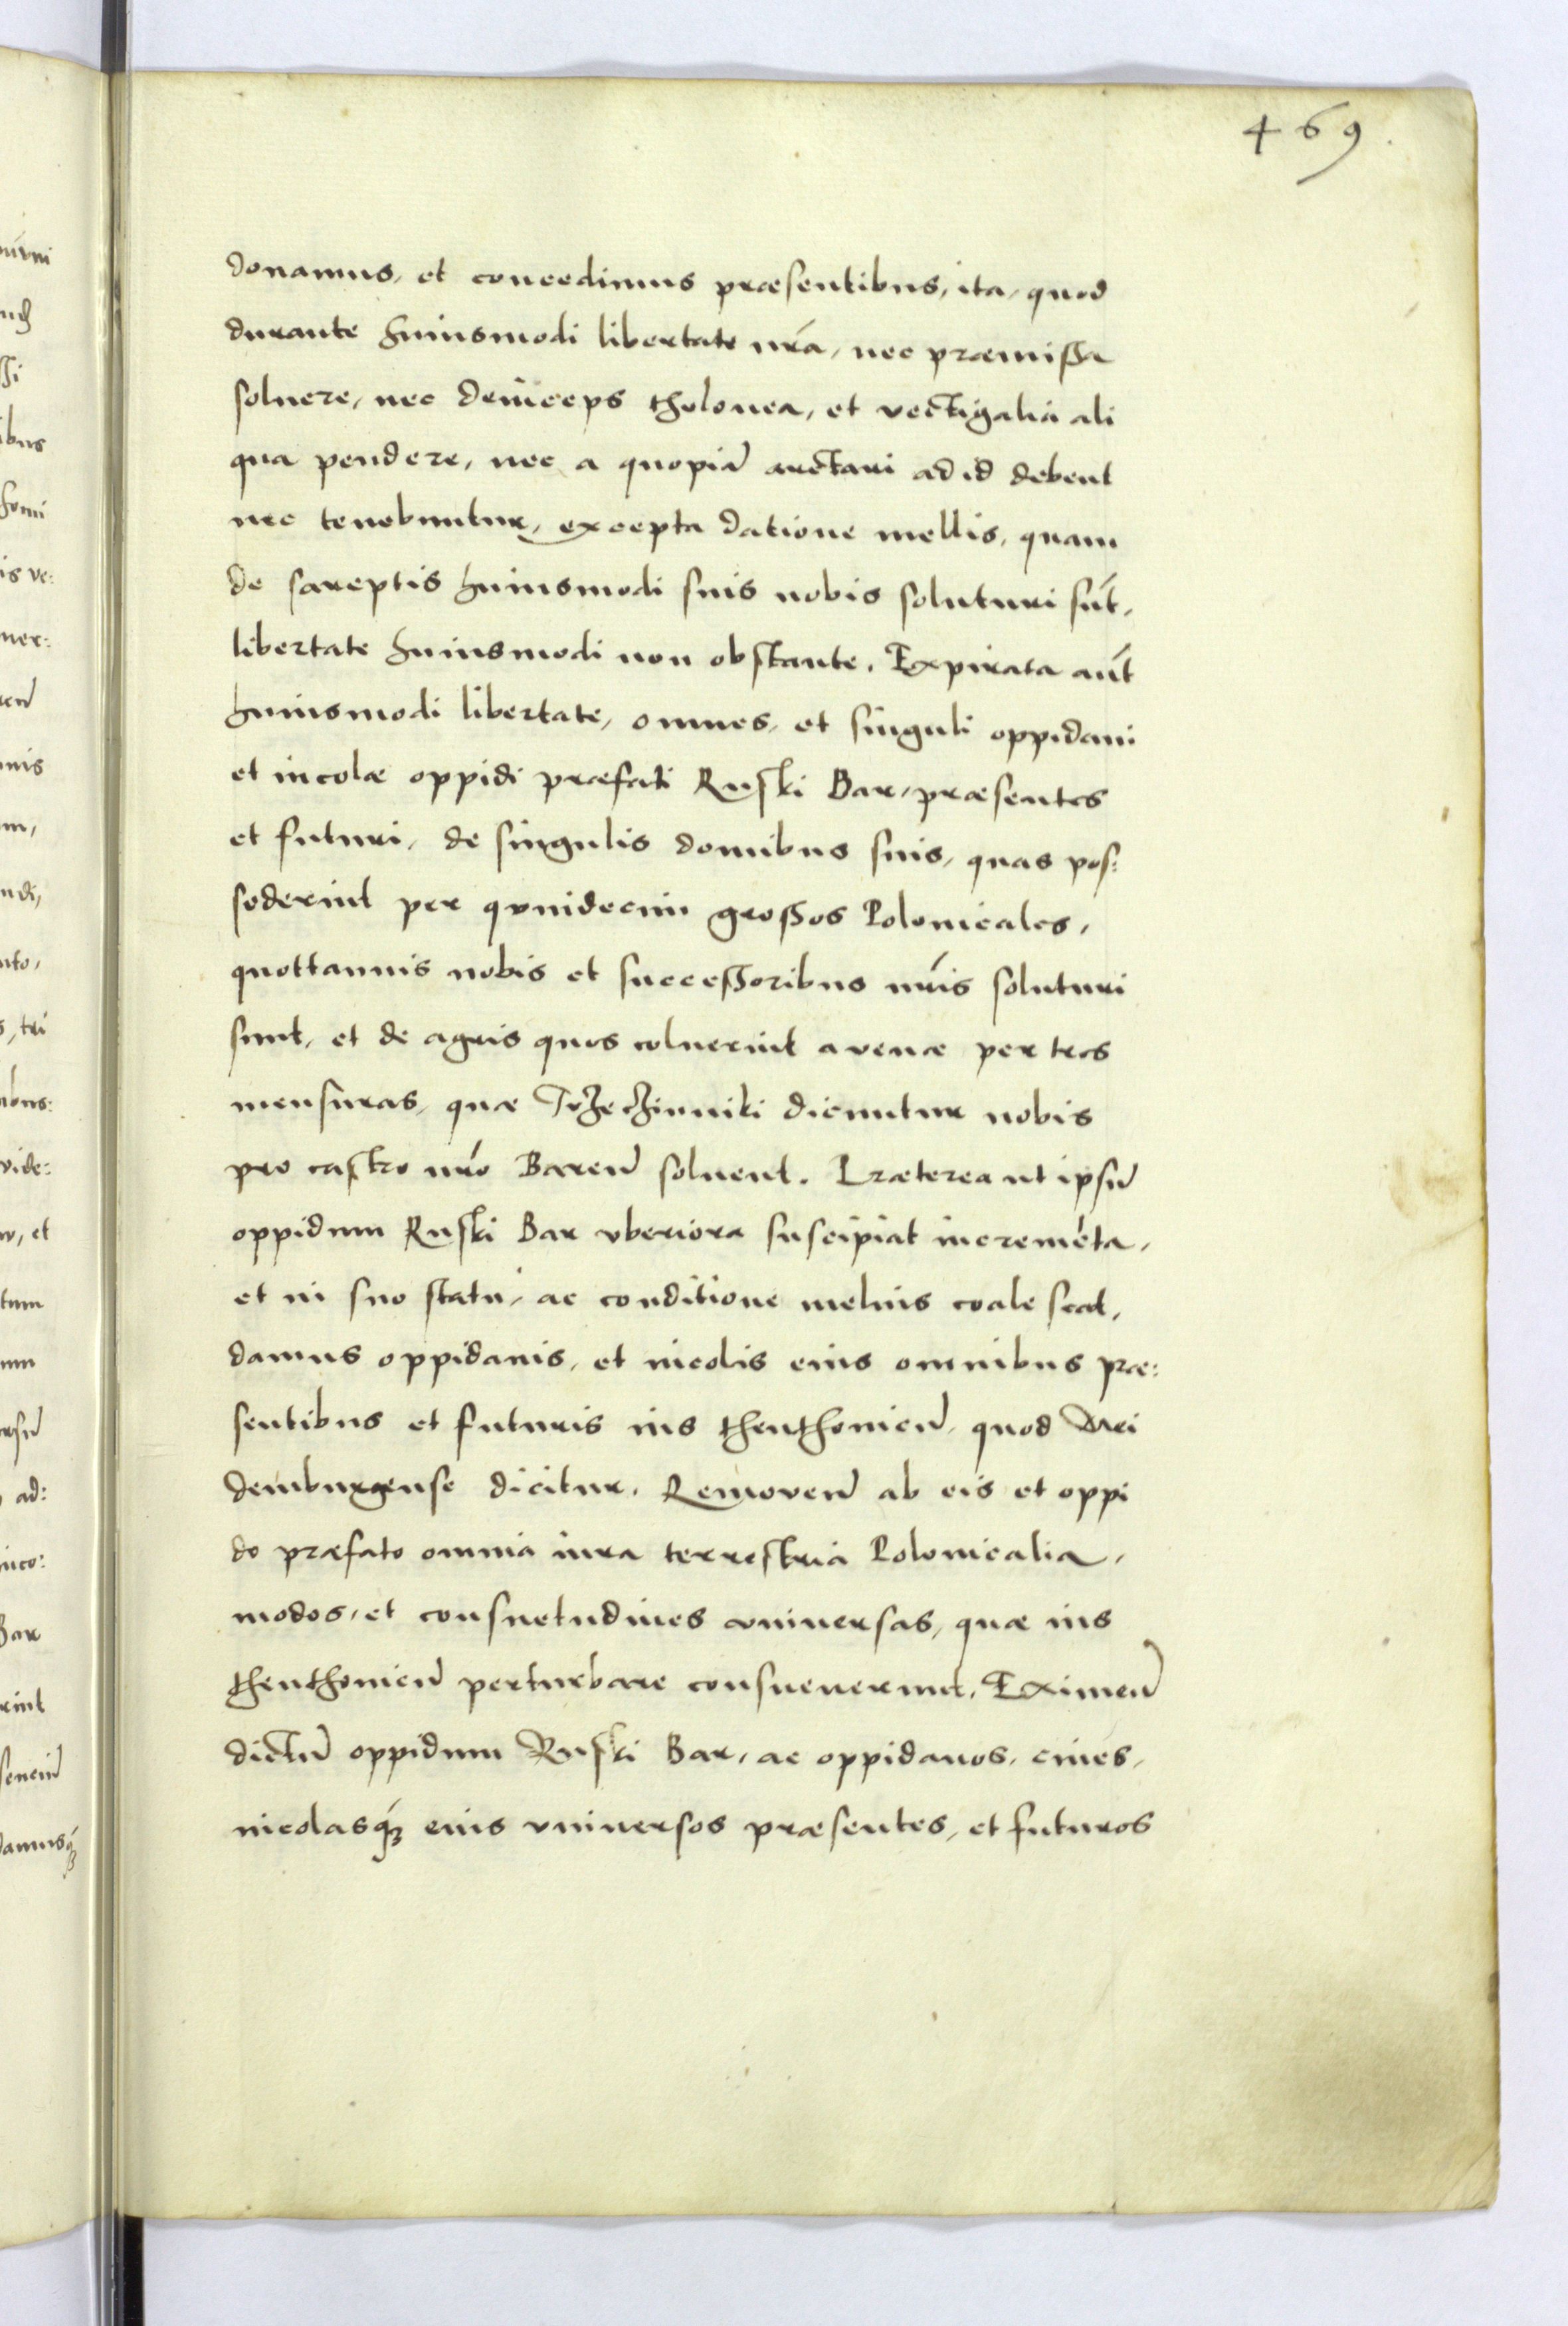 469.
donamus, et concedimus præsentibus, ita, quod
durante huiusmodi libertate nrã, nec præmissa
soluere, nec deinceps tholonea, et vectigalia ali
qua pendere, nec a quopiã arctari ad id debent
nec tenebuntur, excepta datione mellis, quam
de sareptis huiusmodi suis nobis soluturi sũt,
libertate huiusmodi non obstante. Expirata aũt
huiusmodi libertate, omnes, et singuli oppidani
et incolæ oppidi præfati Ruski Bar, præsentes
et futuri, de singulis domibus suis, quas pos:
sederint per quindecim grossos Polonicales,
quottannis nobis et successoribus nrĩs soluturi
sunt, et de agris quos coluerint avenæ per tres
mensuras, quæ Trzeczinniki dicuntur nobis
pro castro nrõ Bareñ soluent. Præterea ut ipsũ
oppidum Ruski Bar vberiora suscipiat incremẽta,
et in suo statu, ac conditione melius coalescat,
damus oppidanis, et incolis eius omnibus præ:
sentibus et futuris ius theuthonicũ, quod Mei
demburgense dicitur. Removeñ ab eis et oppi
do præfato omnia iura terrestria Polonicalia,
modos, et consuetudines universas, quæ ius
theuthonicũ perturbare consueuerunt. Eximeñ
dictũ oppidum Ruski Bar, ac oppidanos, ciues,
incolasq́ꝫ eius vniuersos præsentes, et futuros